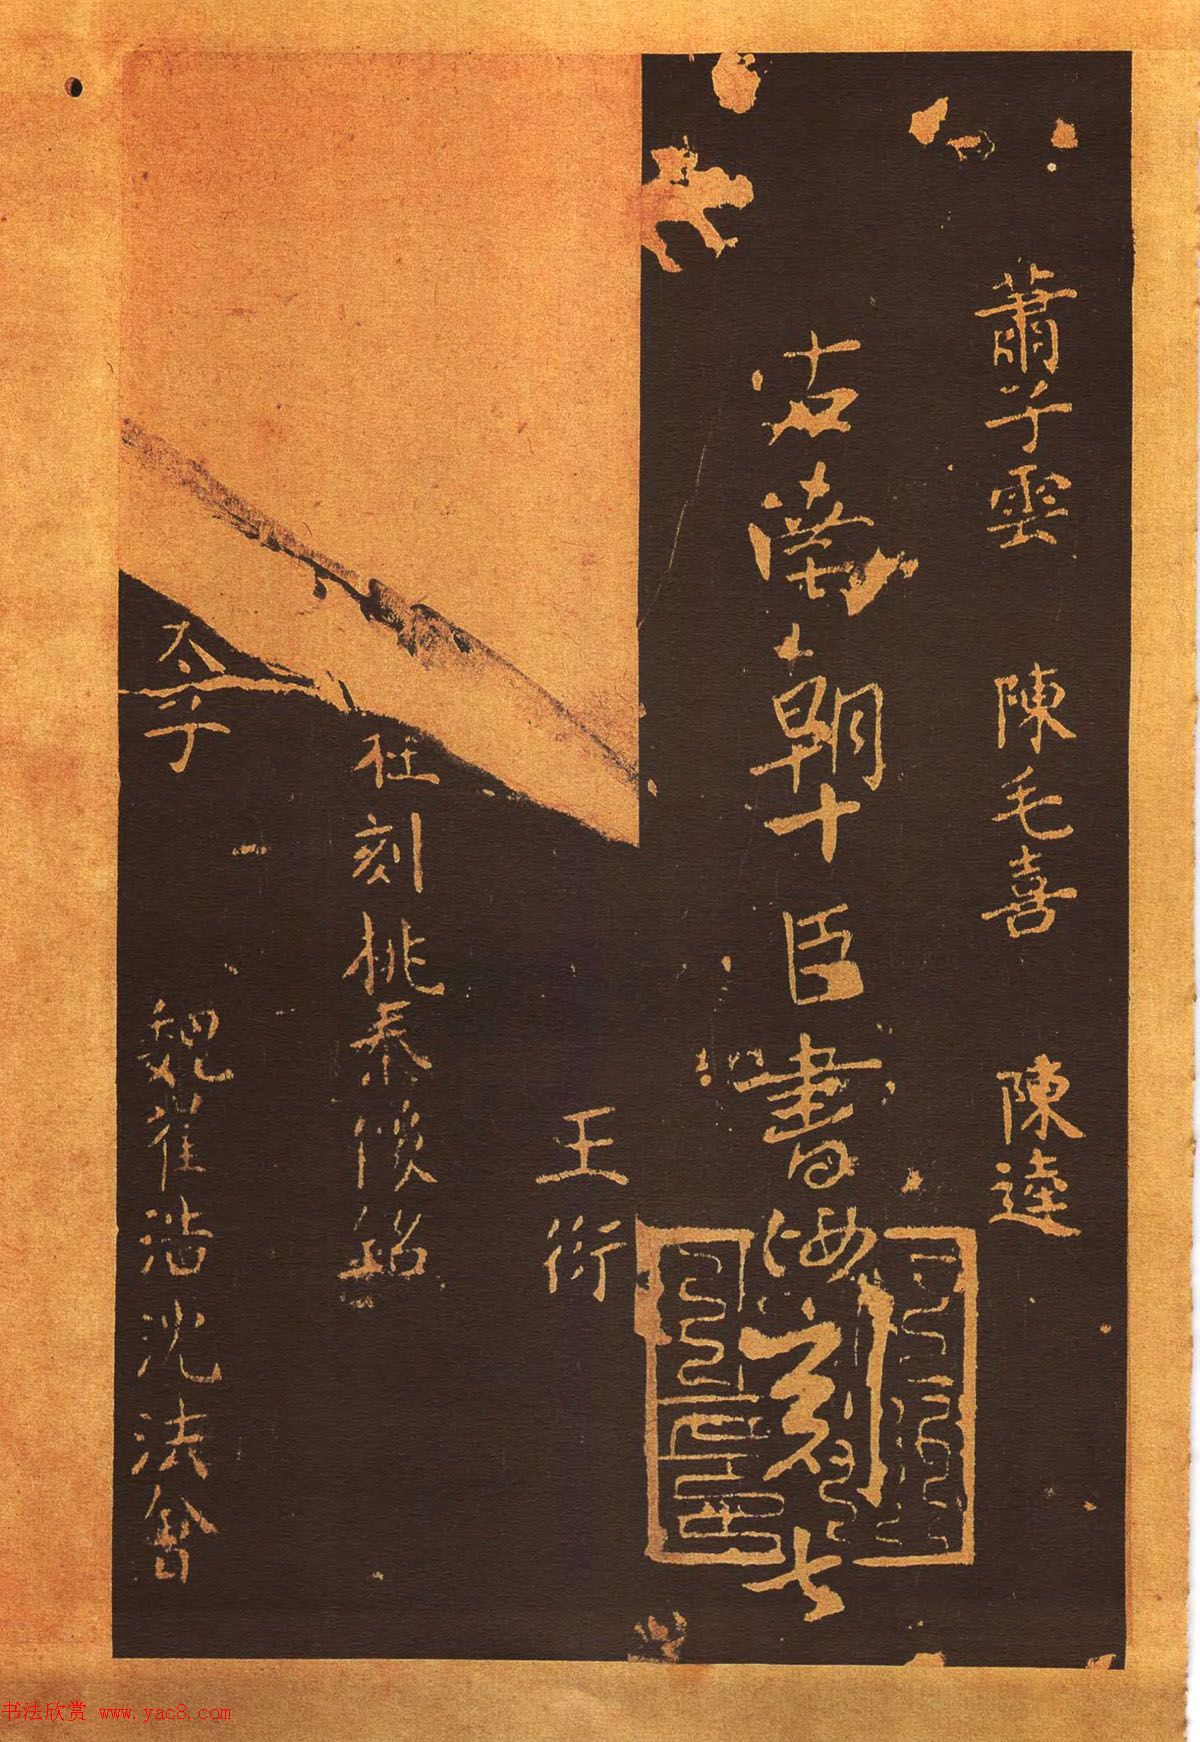 蕭子雲 陳毛喜 陳逵
右南朝十臣書海刻七
王衍
杜刻桃
太子
魏崔浩沈法會
书法欣赏 www.yac8.com